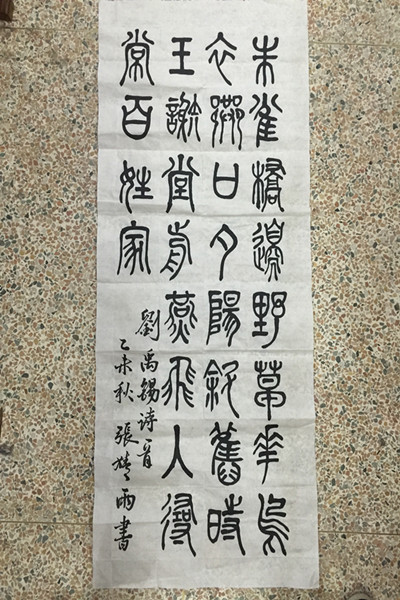 朱雀橋邊野草花烏
衣巷口夕陽斜舊時
王謝堂前燕飛入尋
常百姓家
劉禹錫诗一首
乙未秋 張雨書